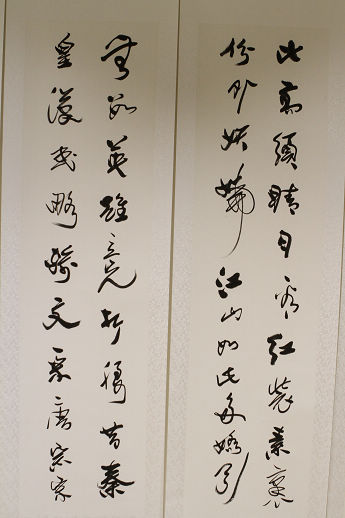 比高須晴日看紅裝素裹
份外妖嬈江山如此多嬌引
無數英雄競折腰昔秦
皇漢武略輸文采唐宗宋